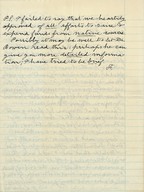 P.S. I failed to say that we heartily
approved of all efforts to raise &
expend funds from native sources
Possibly it may be well to let Dr.
Brown read this; perhaps he can
give you more detailed informa-
tion. I have tried to be brief.